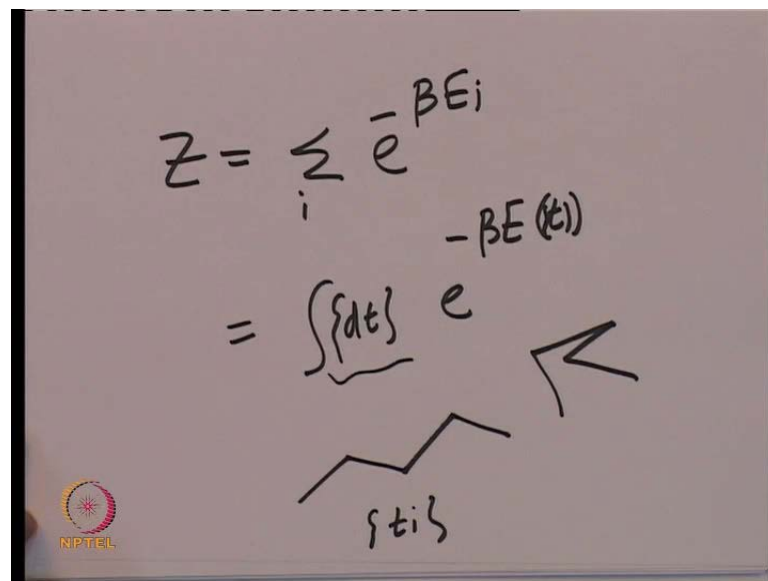 Z = Σ e^{-βEi}
i
= ∫{dt} e^{-βE({t})}
{ti}
NPTEL